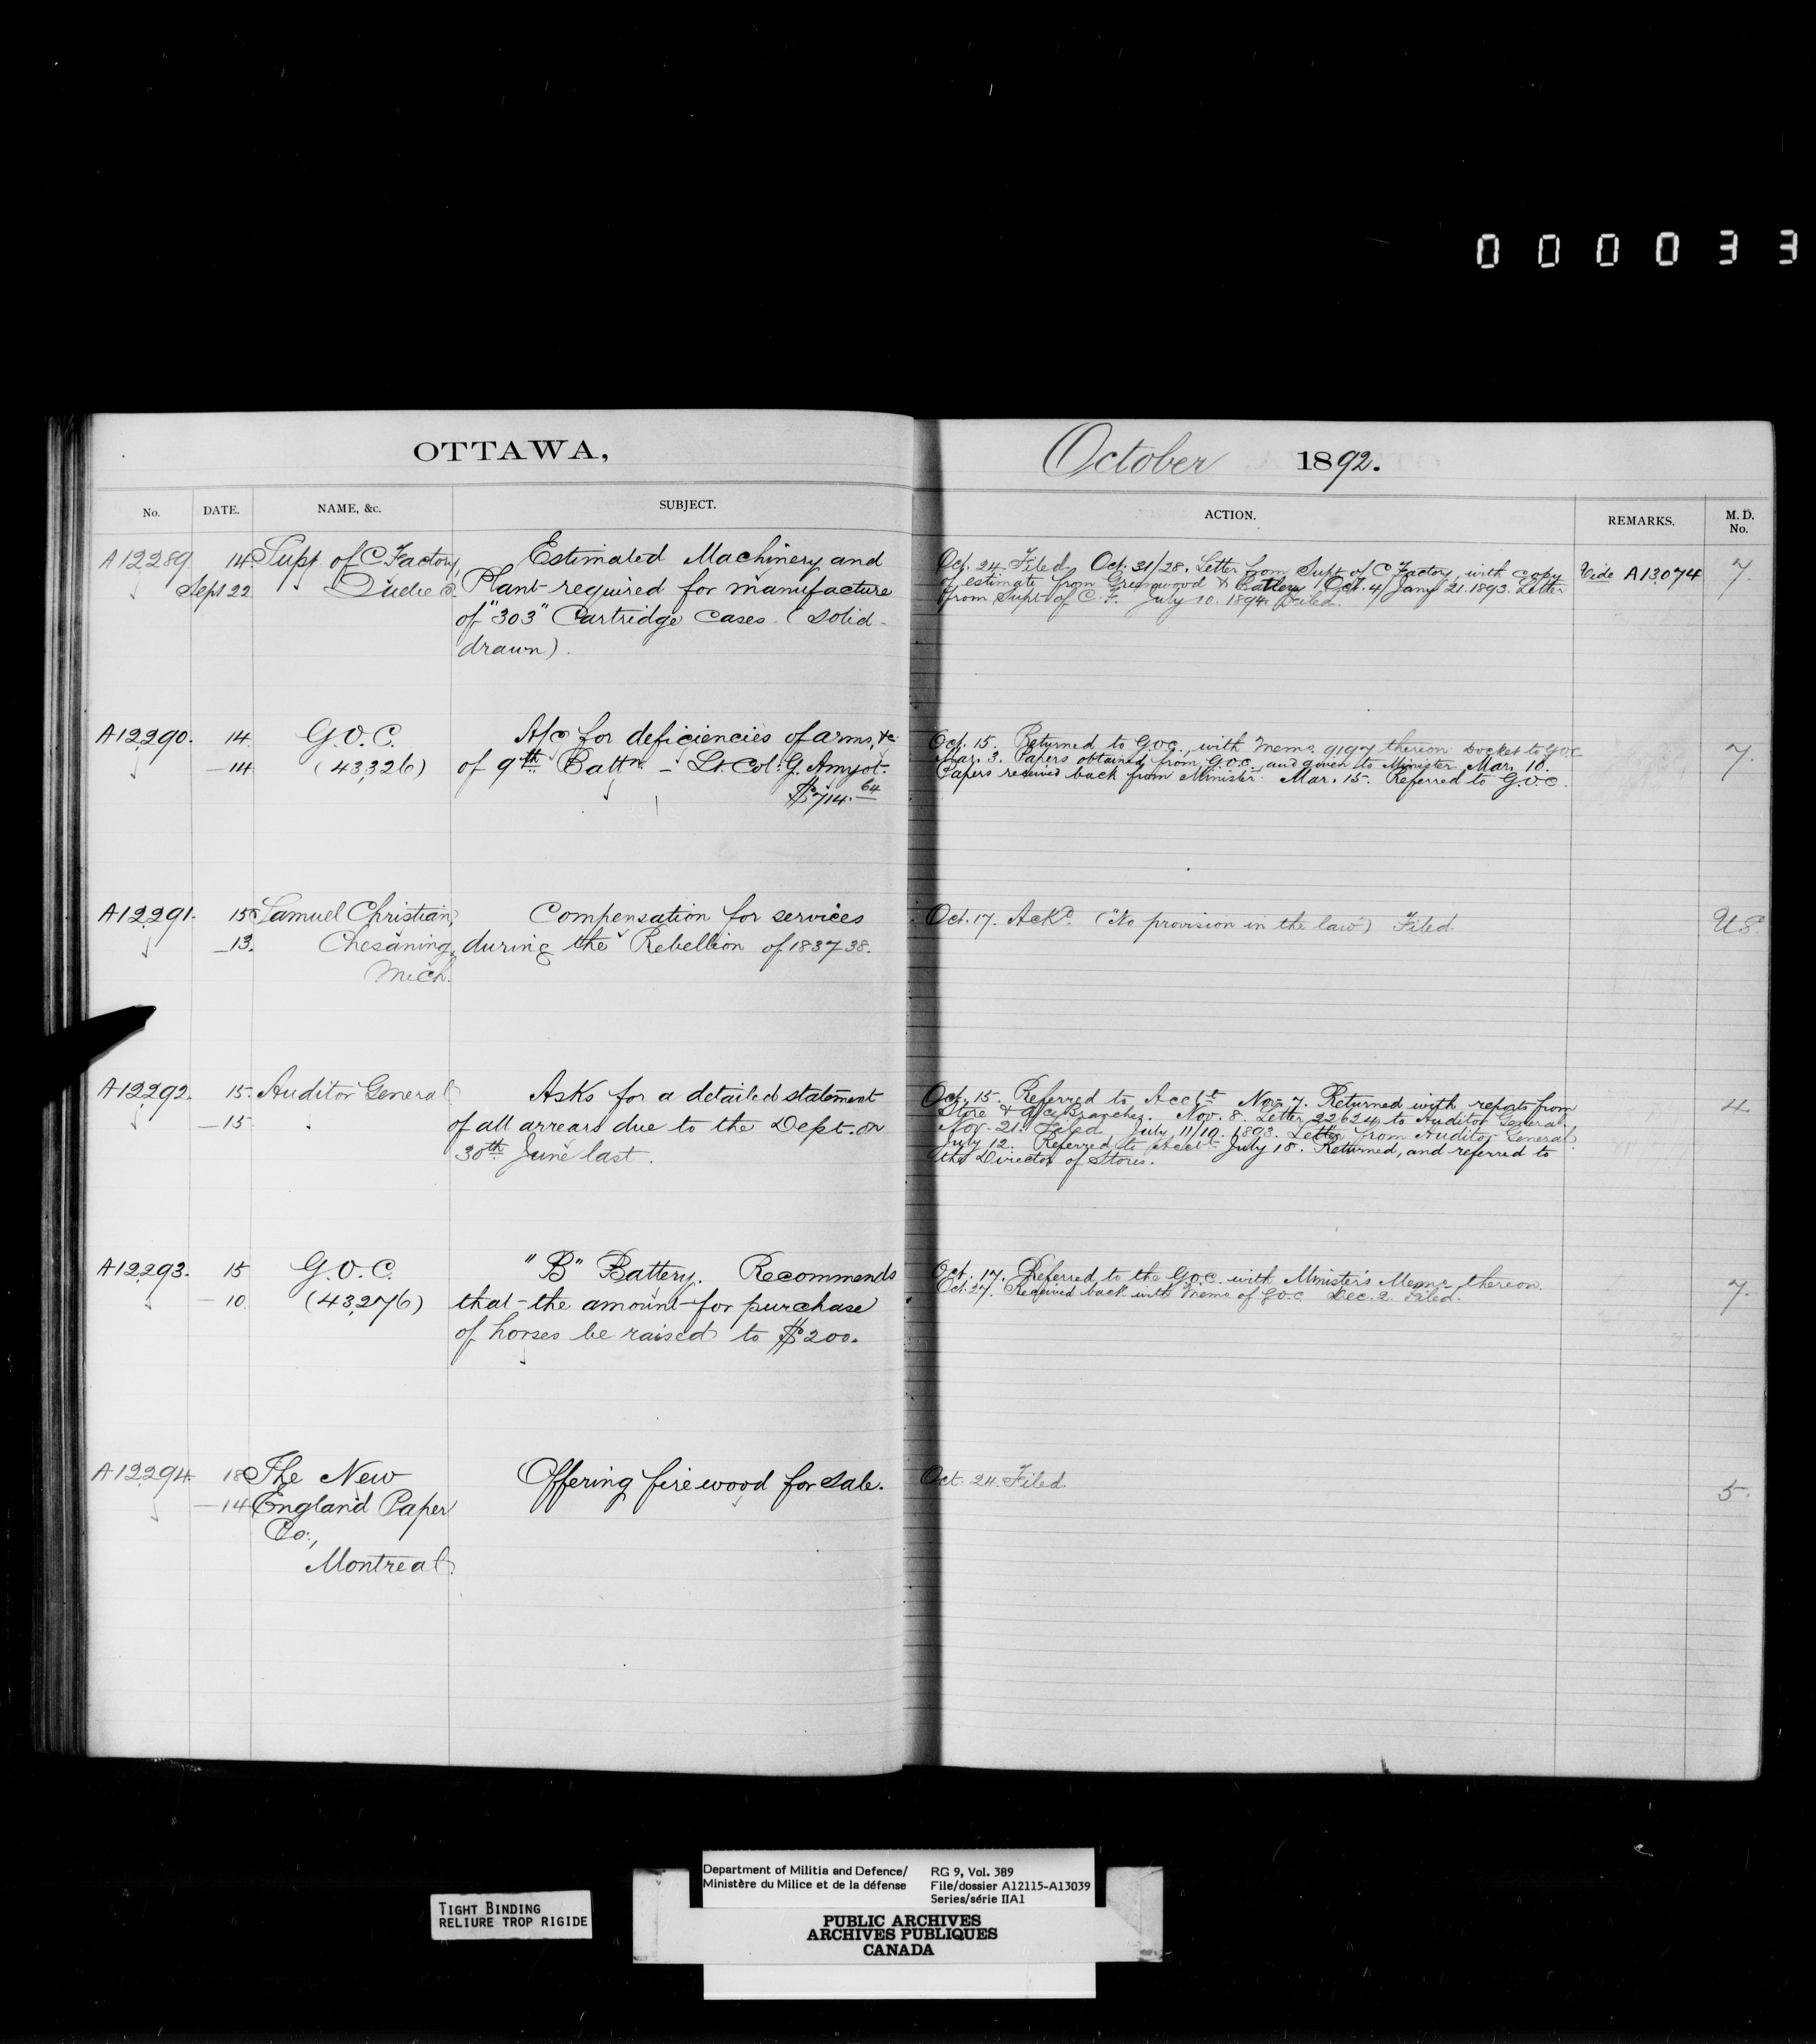 000033
OTTAWA,
October 1892.
No.
DATE.
NAME, &c.
SUBJECT.
ACTION.
REMARKS.
M. D.
No.
A12289 14 Supt of C Factory,
Sept 22 Quebec.
Estimated Machinery and
Plant required for manufacture
of "303" Cartridge Cases (solid-
drawn).
Oct. 24. Filed. Oct. 31/28. Letter from Supt of C Factory, with copy
of estimate from Greenwood & Batley. Oct. 4/ Jany 21. 1893. Letter
from Supt of C. F. July 10. 1894. Filed.
Vide A13074
7.
A12290. 14. G.O.C.
—14. (43,326)
A/c for deficiencies of arms, &c
of 9th Battn. – Lt. Col. G. Amyot.
$714.64
Oct. 15. Returned to G.O.C., with memo 9197 thereon Docket to G.O.C
Mar. 3. Papers obtained from G.O.C. and given to Minister. Mar. 10.
Papers received back from Minister. Mar. 15. Referred to G.O.C.
7.
A12291. 15 Samuel Christian,
—13. Chesaning,
Mich.
Compensation for services
during the Rebellion of 1837 38.
Oct. 17. Ackd. ("No provision in the law") Filed.
U.S.
A12292. 15. Auditor General
—15
Asks for a detailed statement
of all arrears due to the Dept. on
30th June last.
Oct. 15. Referred to Acctt. Nov. 7. Returned with reports from
Store & A/c Branches. Nov. 8. Letter 22624 to Auditor General
Nov. 21. Filed. July 11/10. 1893. Letter from Auditor General.
July 12. Referred to Acctt. July 18. Returned, and referred to
the Director of Stores.
4.
A12293. 15 G.O.C.
— 10. (43,276)
"B" Battery. Recommends
that the amount for purchase
of horses be raised to $200.
Oct. 17. Referred to the G.O.C. with Minister's Memo thereon.
Oct. 27. Received back with memo of G.O.C. Dec. 2. Filed.
7.
A12294. 18 The New
—14 England Paper
Co.,
Montreal.
Offering firewood for sale.
Oct. 24. Filed.
5.
TIGHT BINDING
RELIURE TROP RIGIDE
Department of Militia and Defence/
Ministère du Milice et de la défense
RG 9, Vol. 389
File/dossier A12115-A13039
Series/série IIA1
PUBLIC ARCHIVES
ARCHIVES PUBLIQUES
CANADA